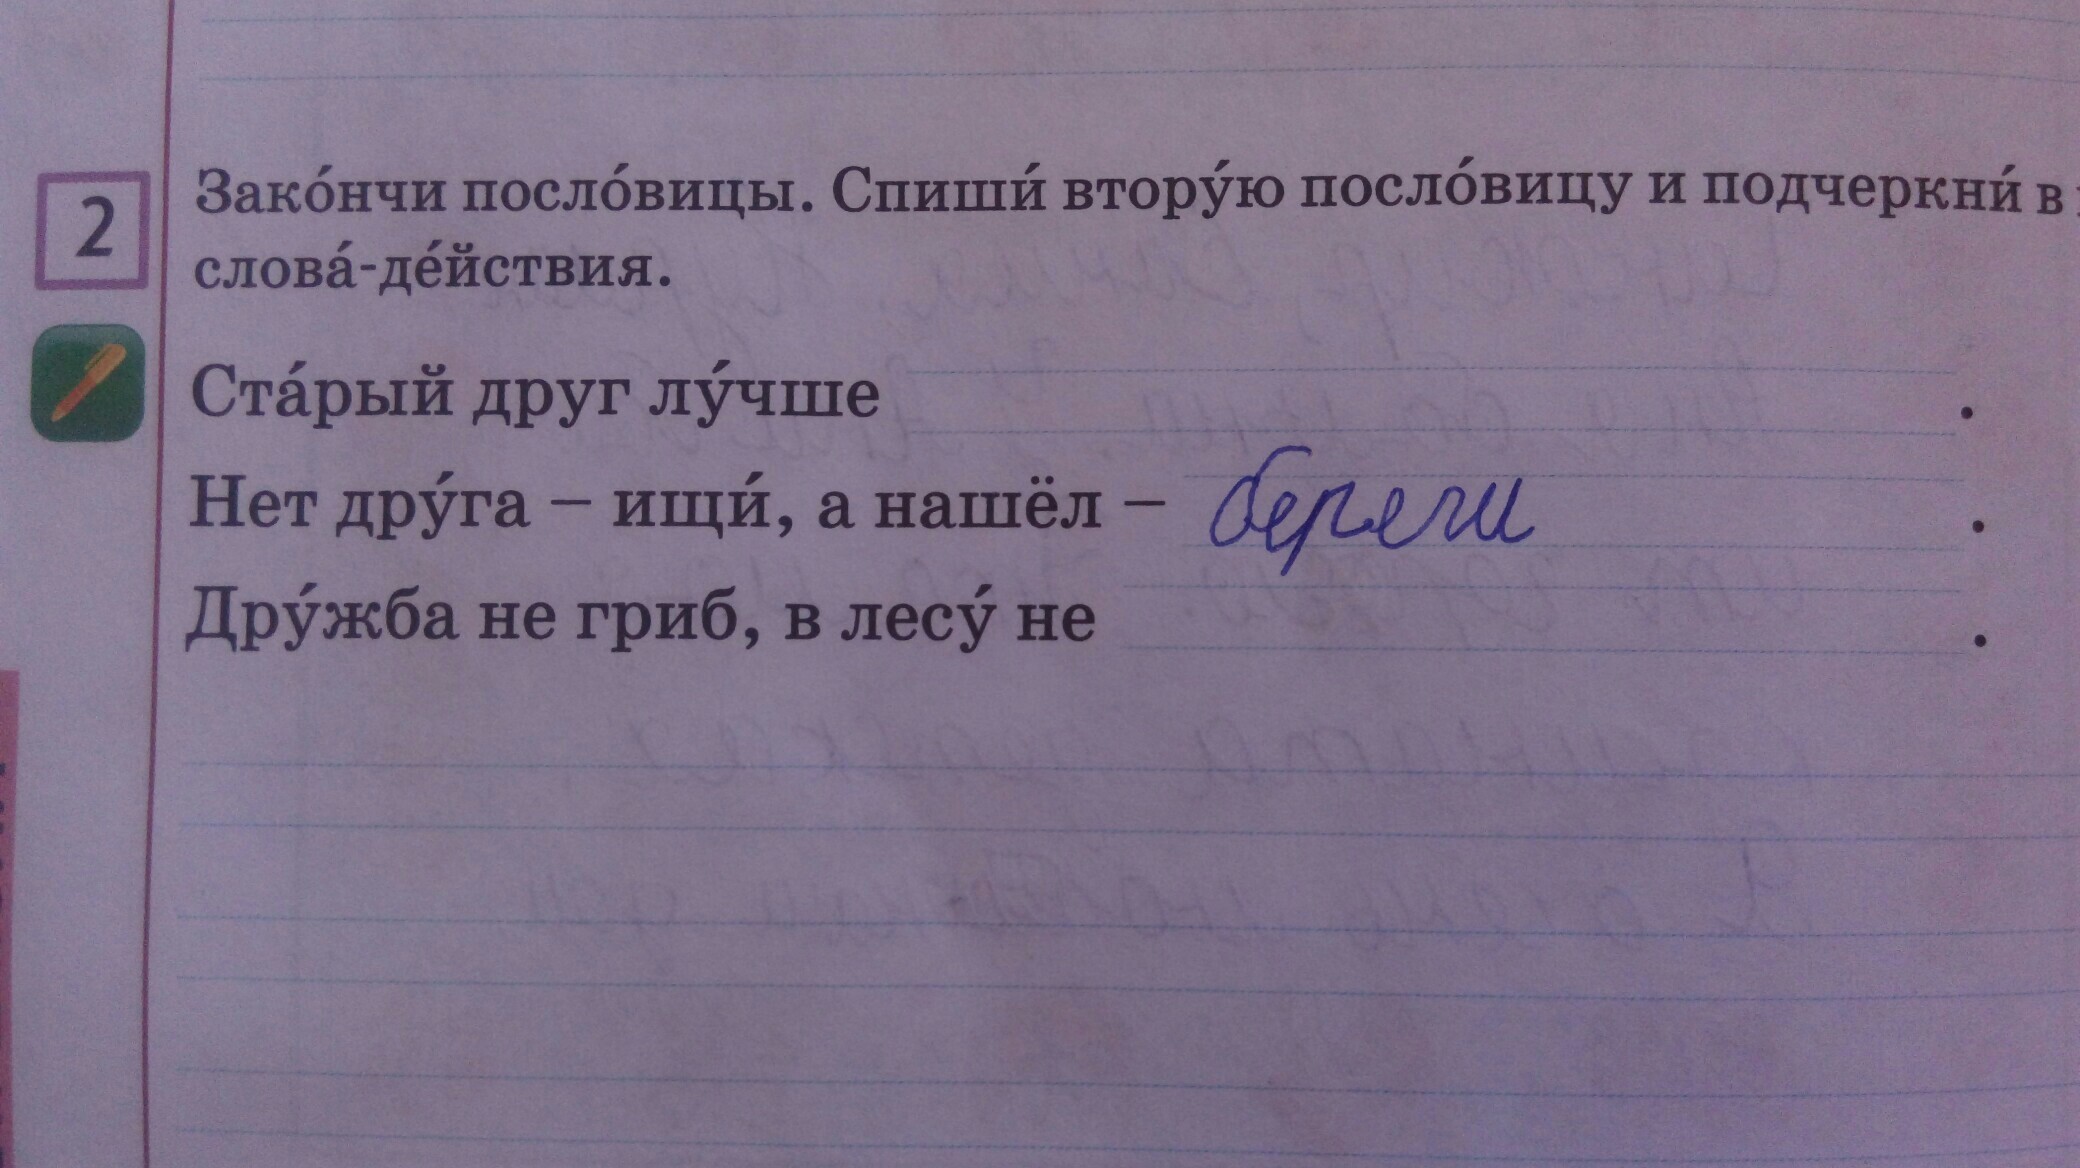 2
Зако́нчи посло́вицы. Спиши́ втору́ю посло́вицу и подчеркни́ в
слова́-де́йствия.
Ста́рый друг лу́чше .
Нет дру́га – ищи́, а нашёл – береги .
Дру́жба не гриб, в лесу́ не .